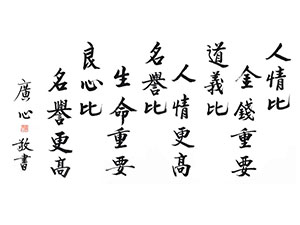 人情比
金錢重要
道義比
人情更高
名譽比
生命重要
良心比
名譽更高
廣心
敬書